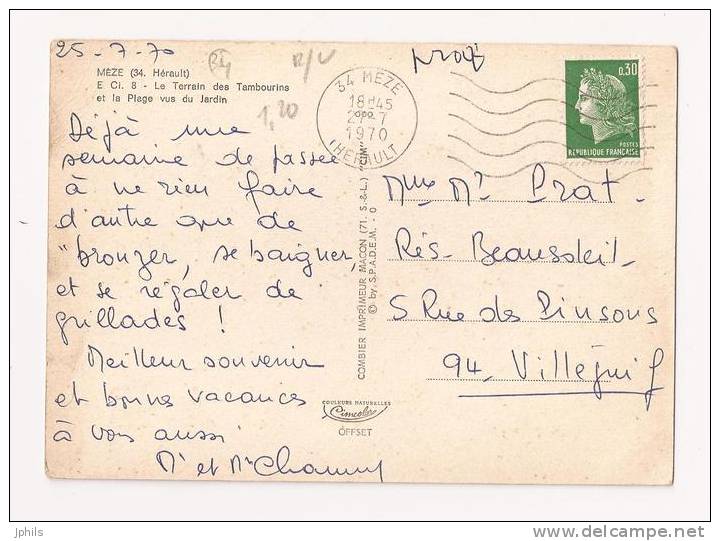 25-7-70
R/V
MÈZE (34. Hérault)
E Ci. 8 - Le Terrain des Tambourins
et la Plage vus du Jardin
1,20
Déjà une
semaine de passée
à ne rien faire
d'autre que de
"bronzer, se baigner,
et se régaler de
grillades !
Meilleur souvenir
et bonnes vacances
à vous aussi
Mr et Me
34 MEZE
18H45
27-7
1970
HERAULT
0,30
POSTES
REPUBLIQUE FRANÇAISE
COMBIER IMPRIMEUR MACON (71. S.-&-L.) "CIM"
© by S.P.A.D.E.M. - O
COULEURS NATURELLES
Cimcolor
OFFSET
Mme Mr Prat.
Rés. Beausoleil.
5 Rue des Pinsons
94. Villejuif
jphils
delcampe.net